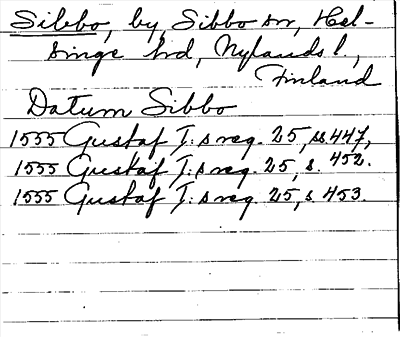 Sibbo, by, Sibbo sn, Hel-
singe hd, Nylands l.,
Finland
Datum Sibbo
1555 Gustaf I:s reg. 25, ss 447,
1555 Gustaf I:s reg. 25, s. 452.
1555 Gustaf I:s reg. 25, s. 453.